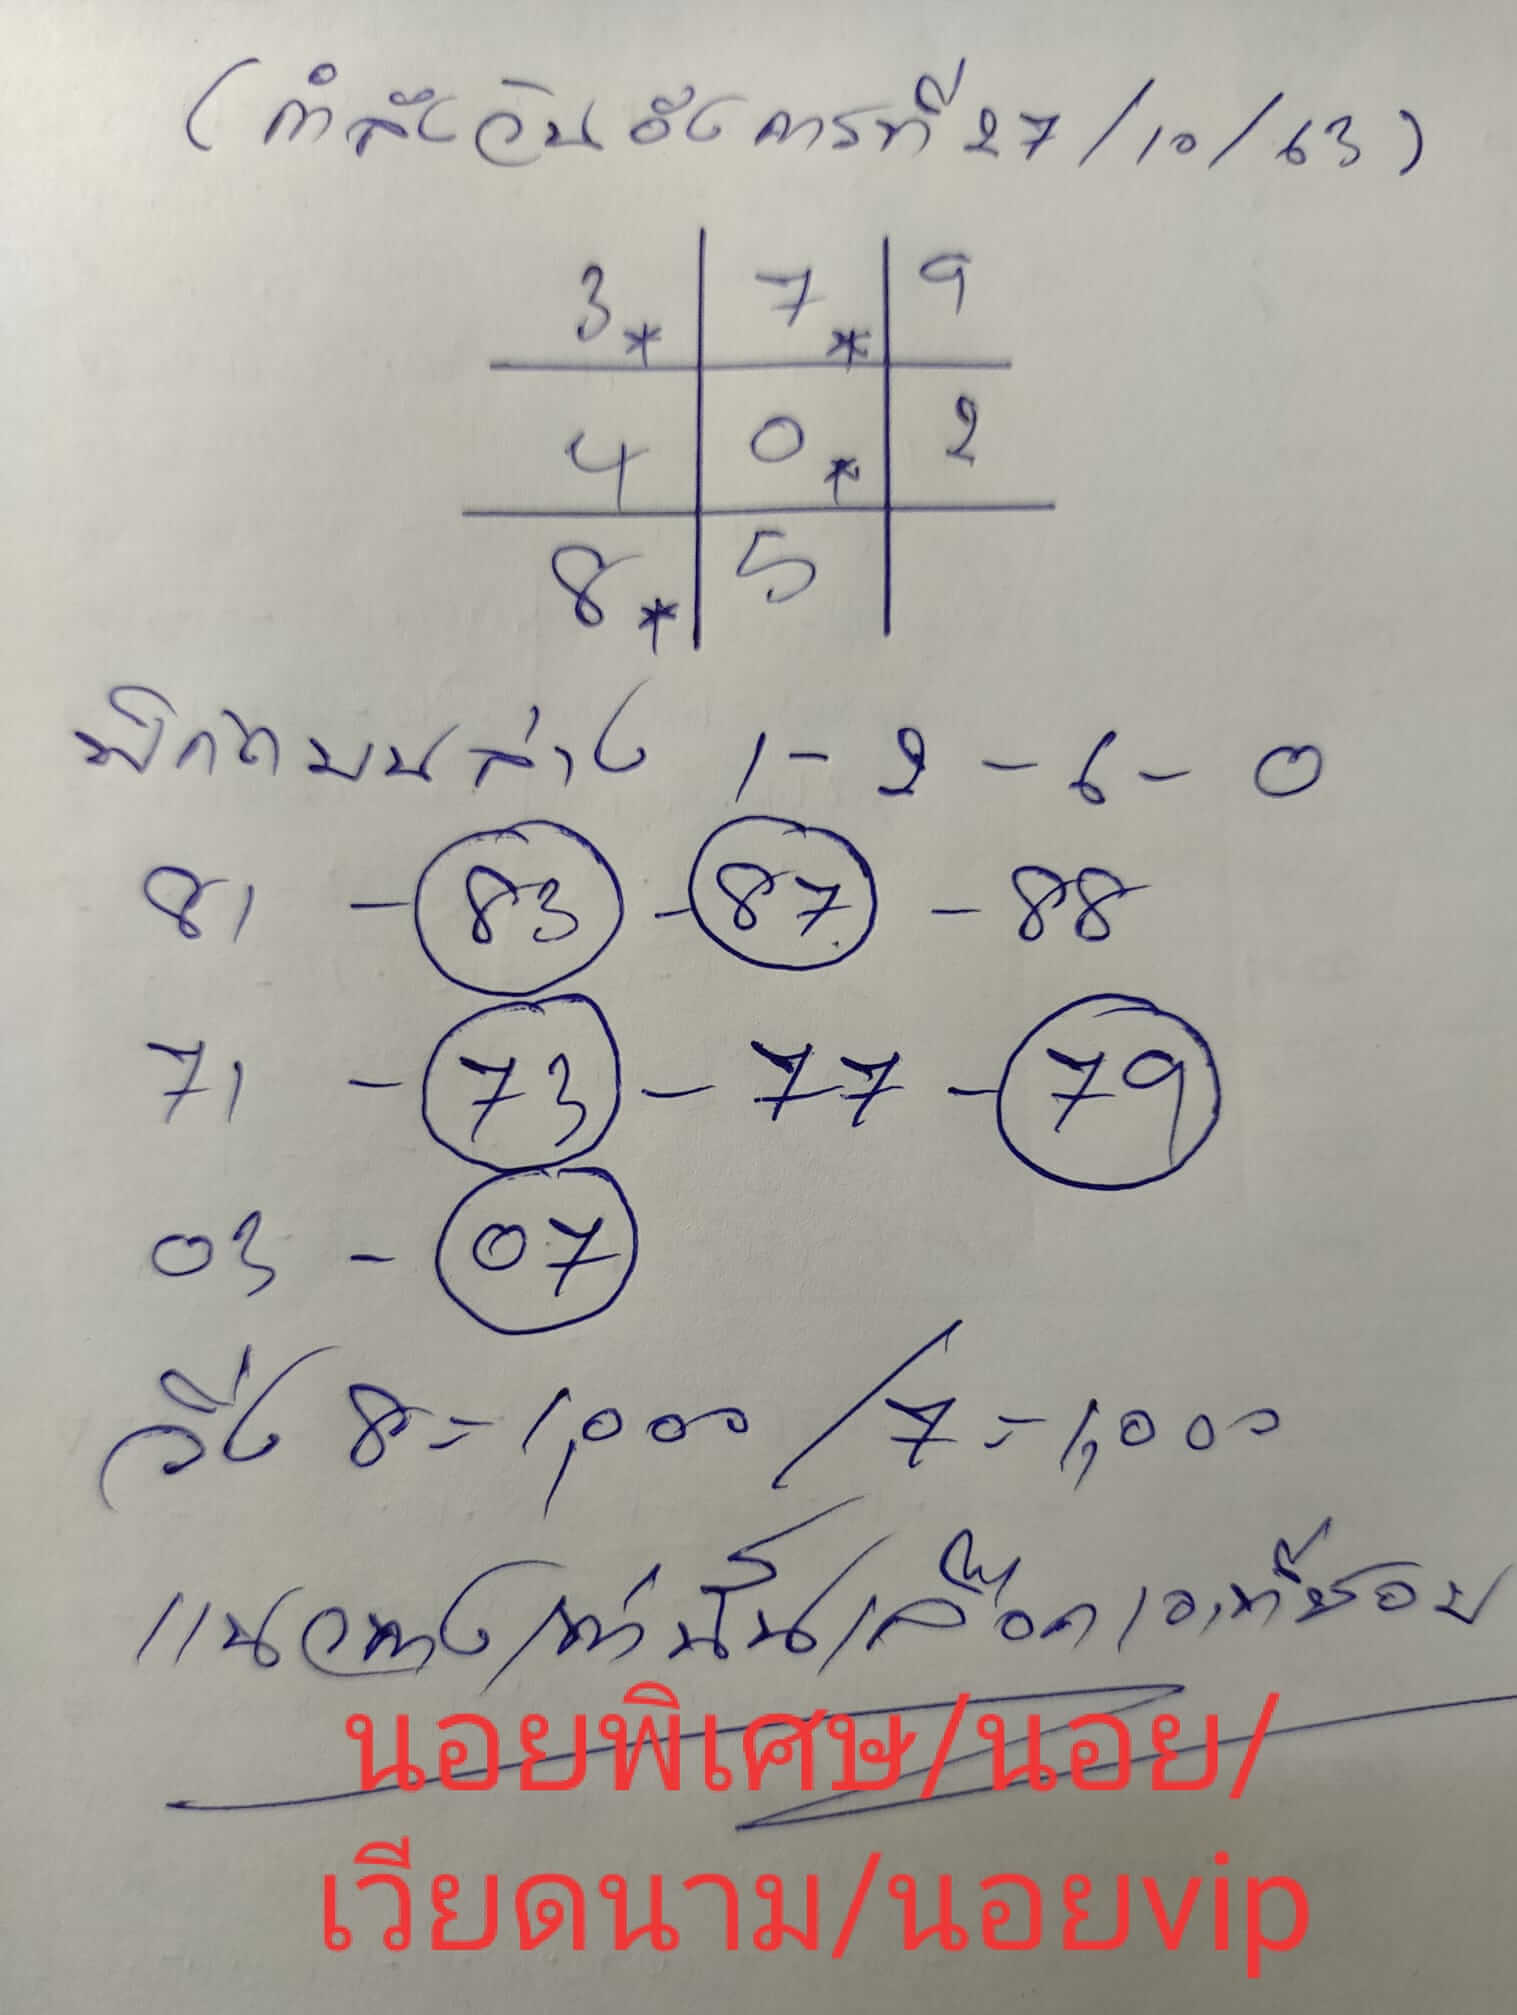 (กำลังวันอังคารที่ 27/10/63)
3* 7* 9
4 0* 2
8* 5
พิกัดบนล่าง 1-2-6-0
81 - 83 - 87 - 88
71 - 73 - 77 - 79
03 - 07
วิ่ง 8=1,000/7=1,000
แนวทางเท่านั้นเลือกเอาที่ชอบ
นอยพิเศษ/นอย/
เวียดนาม/นอยvip